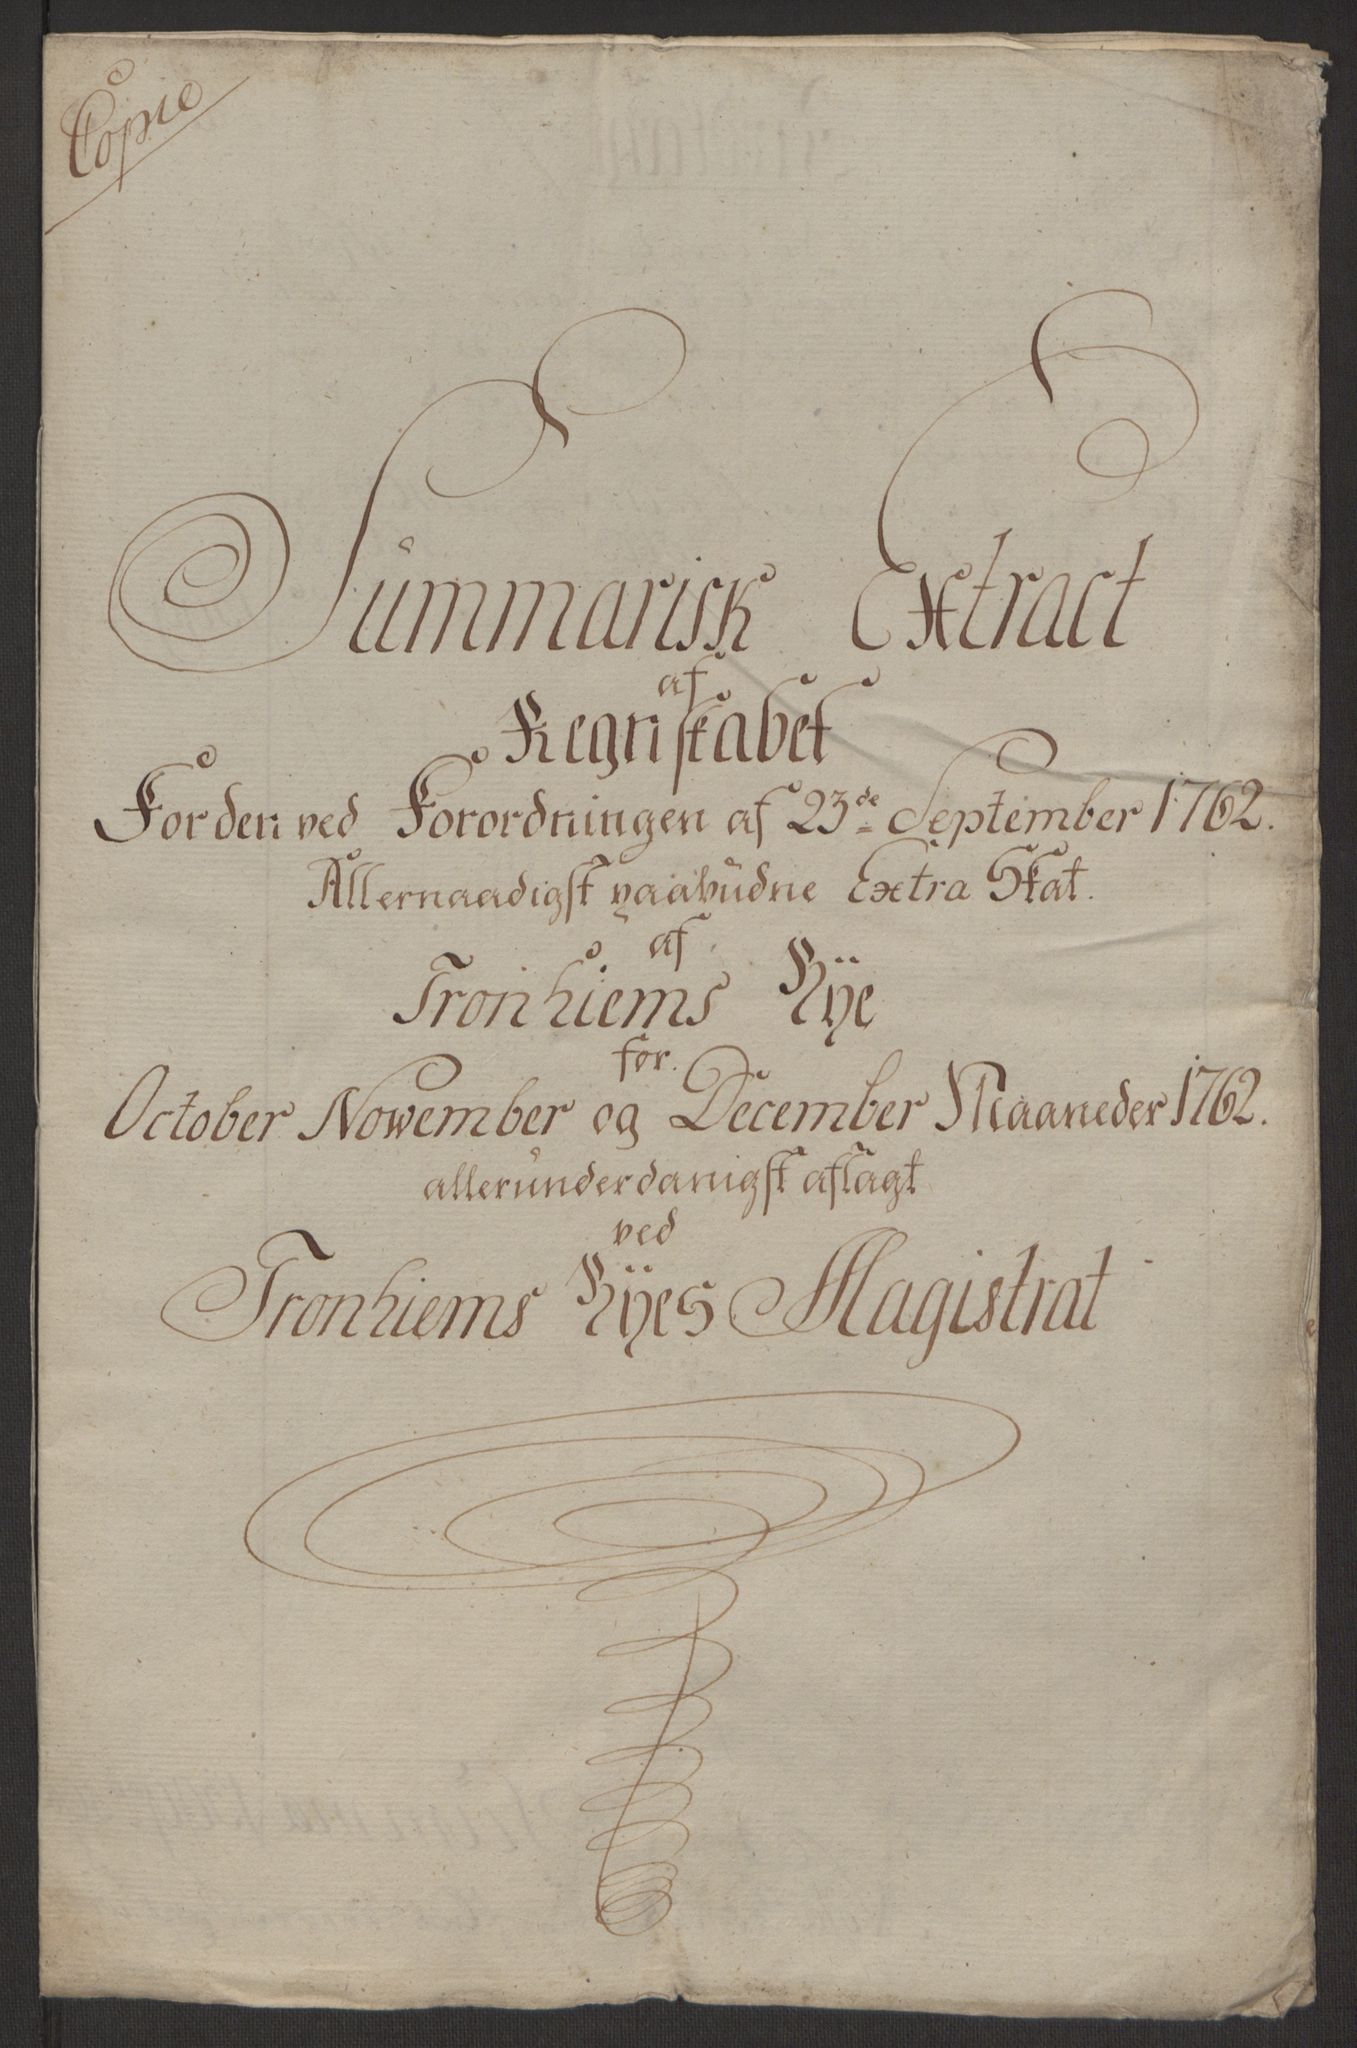 Copie
Summarisk Extract
af
Regnskabet
For den ved Forordningen af 23de September 1762.
Allernaadigst paabudne Extra Skat.
af
Tronhiems Bÿe
for
October Nowember og December Maaneder 1762.
allerunderdanigst aflagt
ved
Tronhiems Bÿes Magistrat